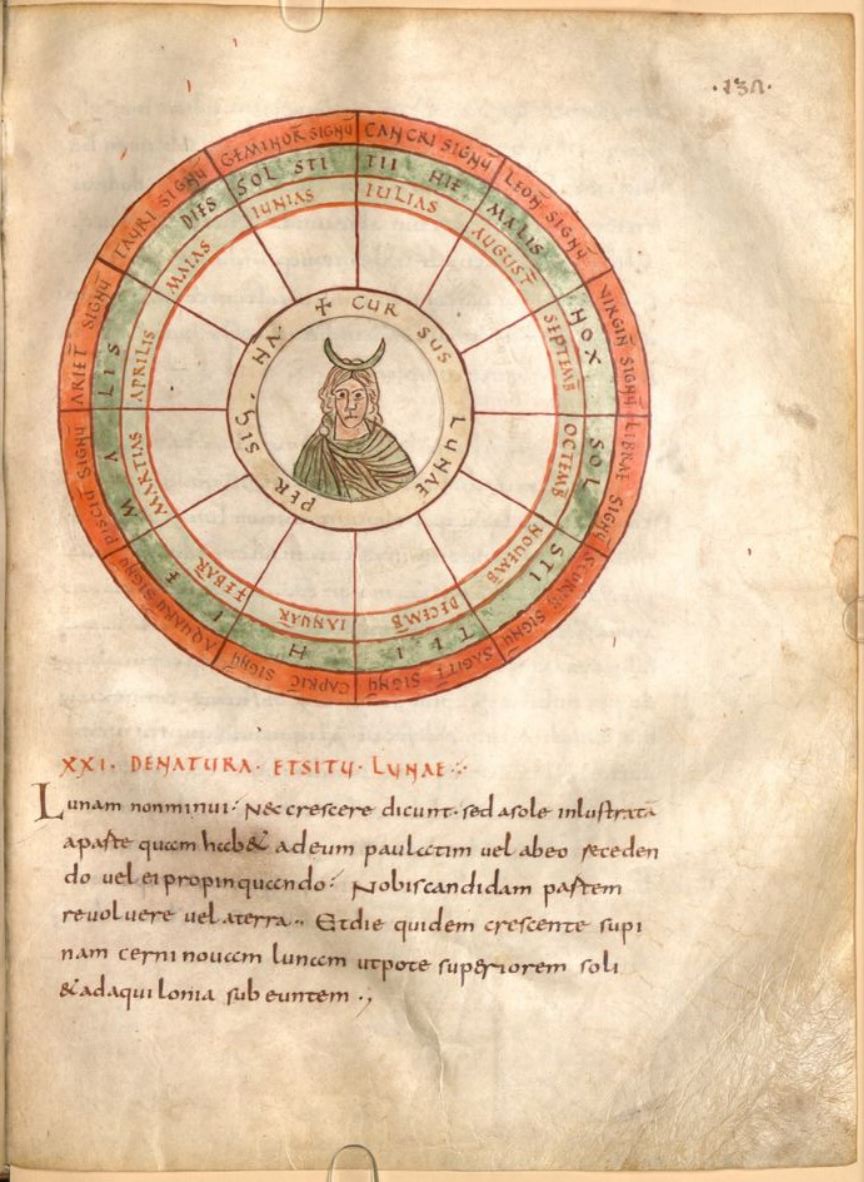 CANCRI SIGNŪ
LEON̄ SIGNŪ
VIRGIN̄ SIGNŪ
LIBRAE SIGNŪ
SIGNŪ
SAGITĪ SIGNŪ
CAPRIC̄ SIGNŪ
AQUARII SIGNŪ
PISCIŪ SIGNŪ
ARIET̄ SIGNŪ
TAURI SIGNŪ
GEMINOR̄ SIGNŪ
DIES SOL STI TII HIE MALIS
NOX SOL STI TII H I E M A LIS
IULIAS
AUGUST̄
SEPTEMB̄
OCTEMB̄
NOUEMB̄
DECEMB̄
IANUAR̄
FEBAR̄
MARTIAS
APRILIS
MAIAS
IUNIAS
+ CUR SUS LUNAE PER SIG. NA.
XXI. DENATURA. ETSITU. LUNAE
Lunam nonminui. Nec crescere dicunt. sed asole inlustratā
aparte quam habet adeum paulatim uel abeo seceden
do uel ei propinquando. Nobis candidam partem
reuoluere uel aterra. Etdie quidem crescente supi
nam cerni nouam lunam utpote superiorem soli
& adaquilonia sub euntem.,